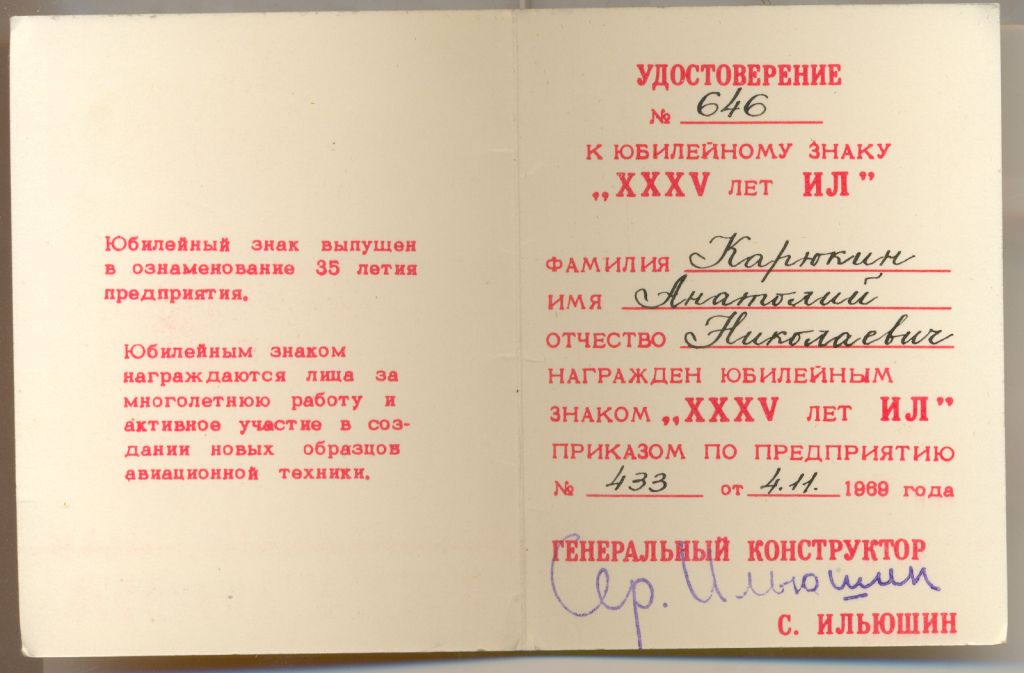 Юбилейный знак выпущен
в ознаменование 35 летия
предприятия.
Юбилейным знаком
награждаются лица за
многолетнюю работу и
активное участие в соз-
дании новых образцов
авиационной техники.
УДОСТОВЕРЕНИЕ
№ 646
К ЮБИЛЕЙНОМУ ЗНАКУ
„XXXV ЛЕТ ИЛ”
ФАМИЛИЯ Карюкин
ИМЯ Анатолий
ОТЧЕСТВО Николаевич
НАГРАЖДЕН ЮБИЛЕЙНЫМ
ЗНАКОМ „XXXV ЛЕТ ИЛ”
ПРИКАЗОМ ПО ПРЕДПРИЯТИЮ
№ 433 от 4.11. 1969 года
ГЕНЕРАЛЬНЫЙ КОНСТРУКТОР
Сер. Ильюшин
С. ИЛЬЮШИН